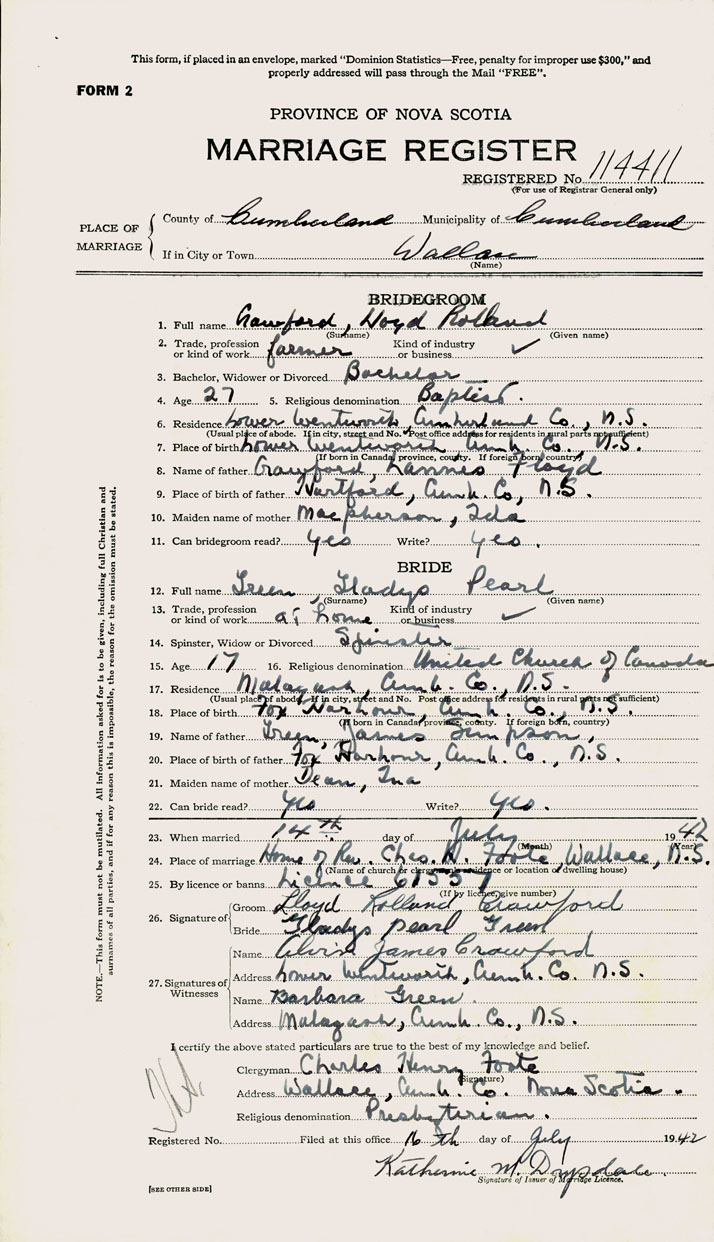 This form, if placed in an envelope, marked “Dominion Statistics—Free, penalty for improper use $300,” and
properly addressed will pass through the Mail “FREE”.
FORM 2
PROVINCE OF NOVA SCOTIA
MARRIAGE REGISTER
REGISTERED No. 114411
(For use of Registrar General only)
PLACE OF MARRIAGE
County of Cumberland Municipality of Cumberland
If in City or Town Wallace
(Name)
BRIDEGROOM
1. Full name Crawford, Lloyd Rolland
(Surname) (Given name)
2. Trade, profession or kind of work farmer Kind of industry or business ✓
3. Bachelor, Widower or Divorced Bachelor
4. Age 27 5. Religious denomination Baptist.
6. Residence Lower Wentworth, Cumberland Co., N.S.
(Usual place of abode. If in city, street and No. Post office address for residents in rural parts not sufficient)
7. Place of birth Lower Wentworth Cumb. Co., N.S.
(If born in Canada, province, county. If foreign born, country)
8. Name of father Crawford, Lannis Floyd
9. Place of birth of father Hartford, Cumb. Co., N.S.
10. Maiden name of mother Macpherson, Ida
11. Can bridegroom read? yes Write? yes.
BRIDE
12. Full name Green, Gladys Pearl
(Surname) (Given name)
13. Trade, profession or kind of work at home Kind of industry or business ✓
14. Spinster, Widow or Divorced Spinster
15. Age 17 16. Religious denomination United Church of Canada
17. Residence Malagash, Cumb. Co., N.S.
(Usual place of abode. If in city, street and No. Post office address for residents in rural parts not sufficient)
18. Place of birth Fox Harbour, Cumb. Co., N.S.
(If born in Canada, province, county. If foreign born, country)
19. Name of father Green, James Simpson,
20. Place of birth of father Fox Harbour, Cumb. Co., N.S.
21. Maiden name of mother Dean, Ina
22. Can bride read? yes Write? yes.
23. When married 14th day of July 1942
(Month) (Year)
24. Place of marriage Home of Rev. Chas. H. Foote, Wallace, N.S.
(Name of church or clergyman's residence or location of dwelling house)
25. By licence or banns Licence
(If by licence, give number)
26. Signature of
Groom Lloyd Rolland Crawford
Bride Gladys Pearl Green
27. Signatures of Witnesses
Name Alvin James Crawford
Address Lower Wentworth, Cumb. Co. N.S.
Name Barbara Green.
Address Malagash, Cumb. Co., N.S.
I certify the above stated particulars are true to the best of my knowledge and belief.
Clergyman Charles Henry Foote
(Signature)
Address Wallace, Cumb. Co. Nova Scotia.
Religious denomination Presbyterian.
Registered No. Filed at this office 16th day of July 1942
Katherine M. Drysdale.
Signature of Issuer of Marriage Licence.
[SEE OTHER SIDE]
NOTE.—This form must not be mutilated. All information asked for is to be given, including full Christian and
surnames of all parties, and if for any reason this is impossible, the reason for the omission must be stated.